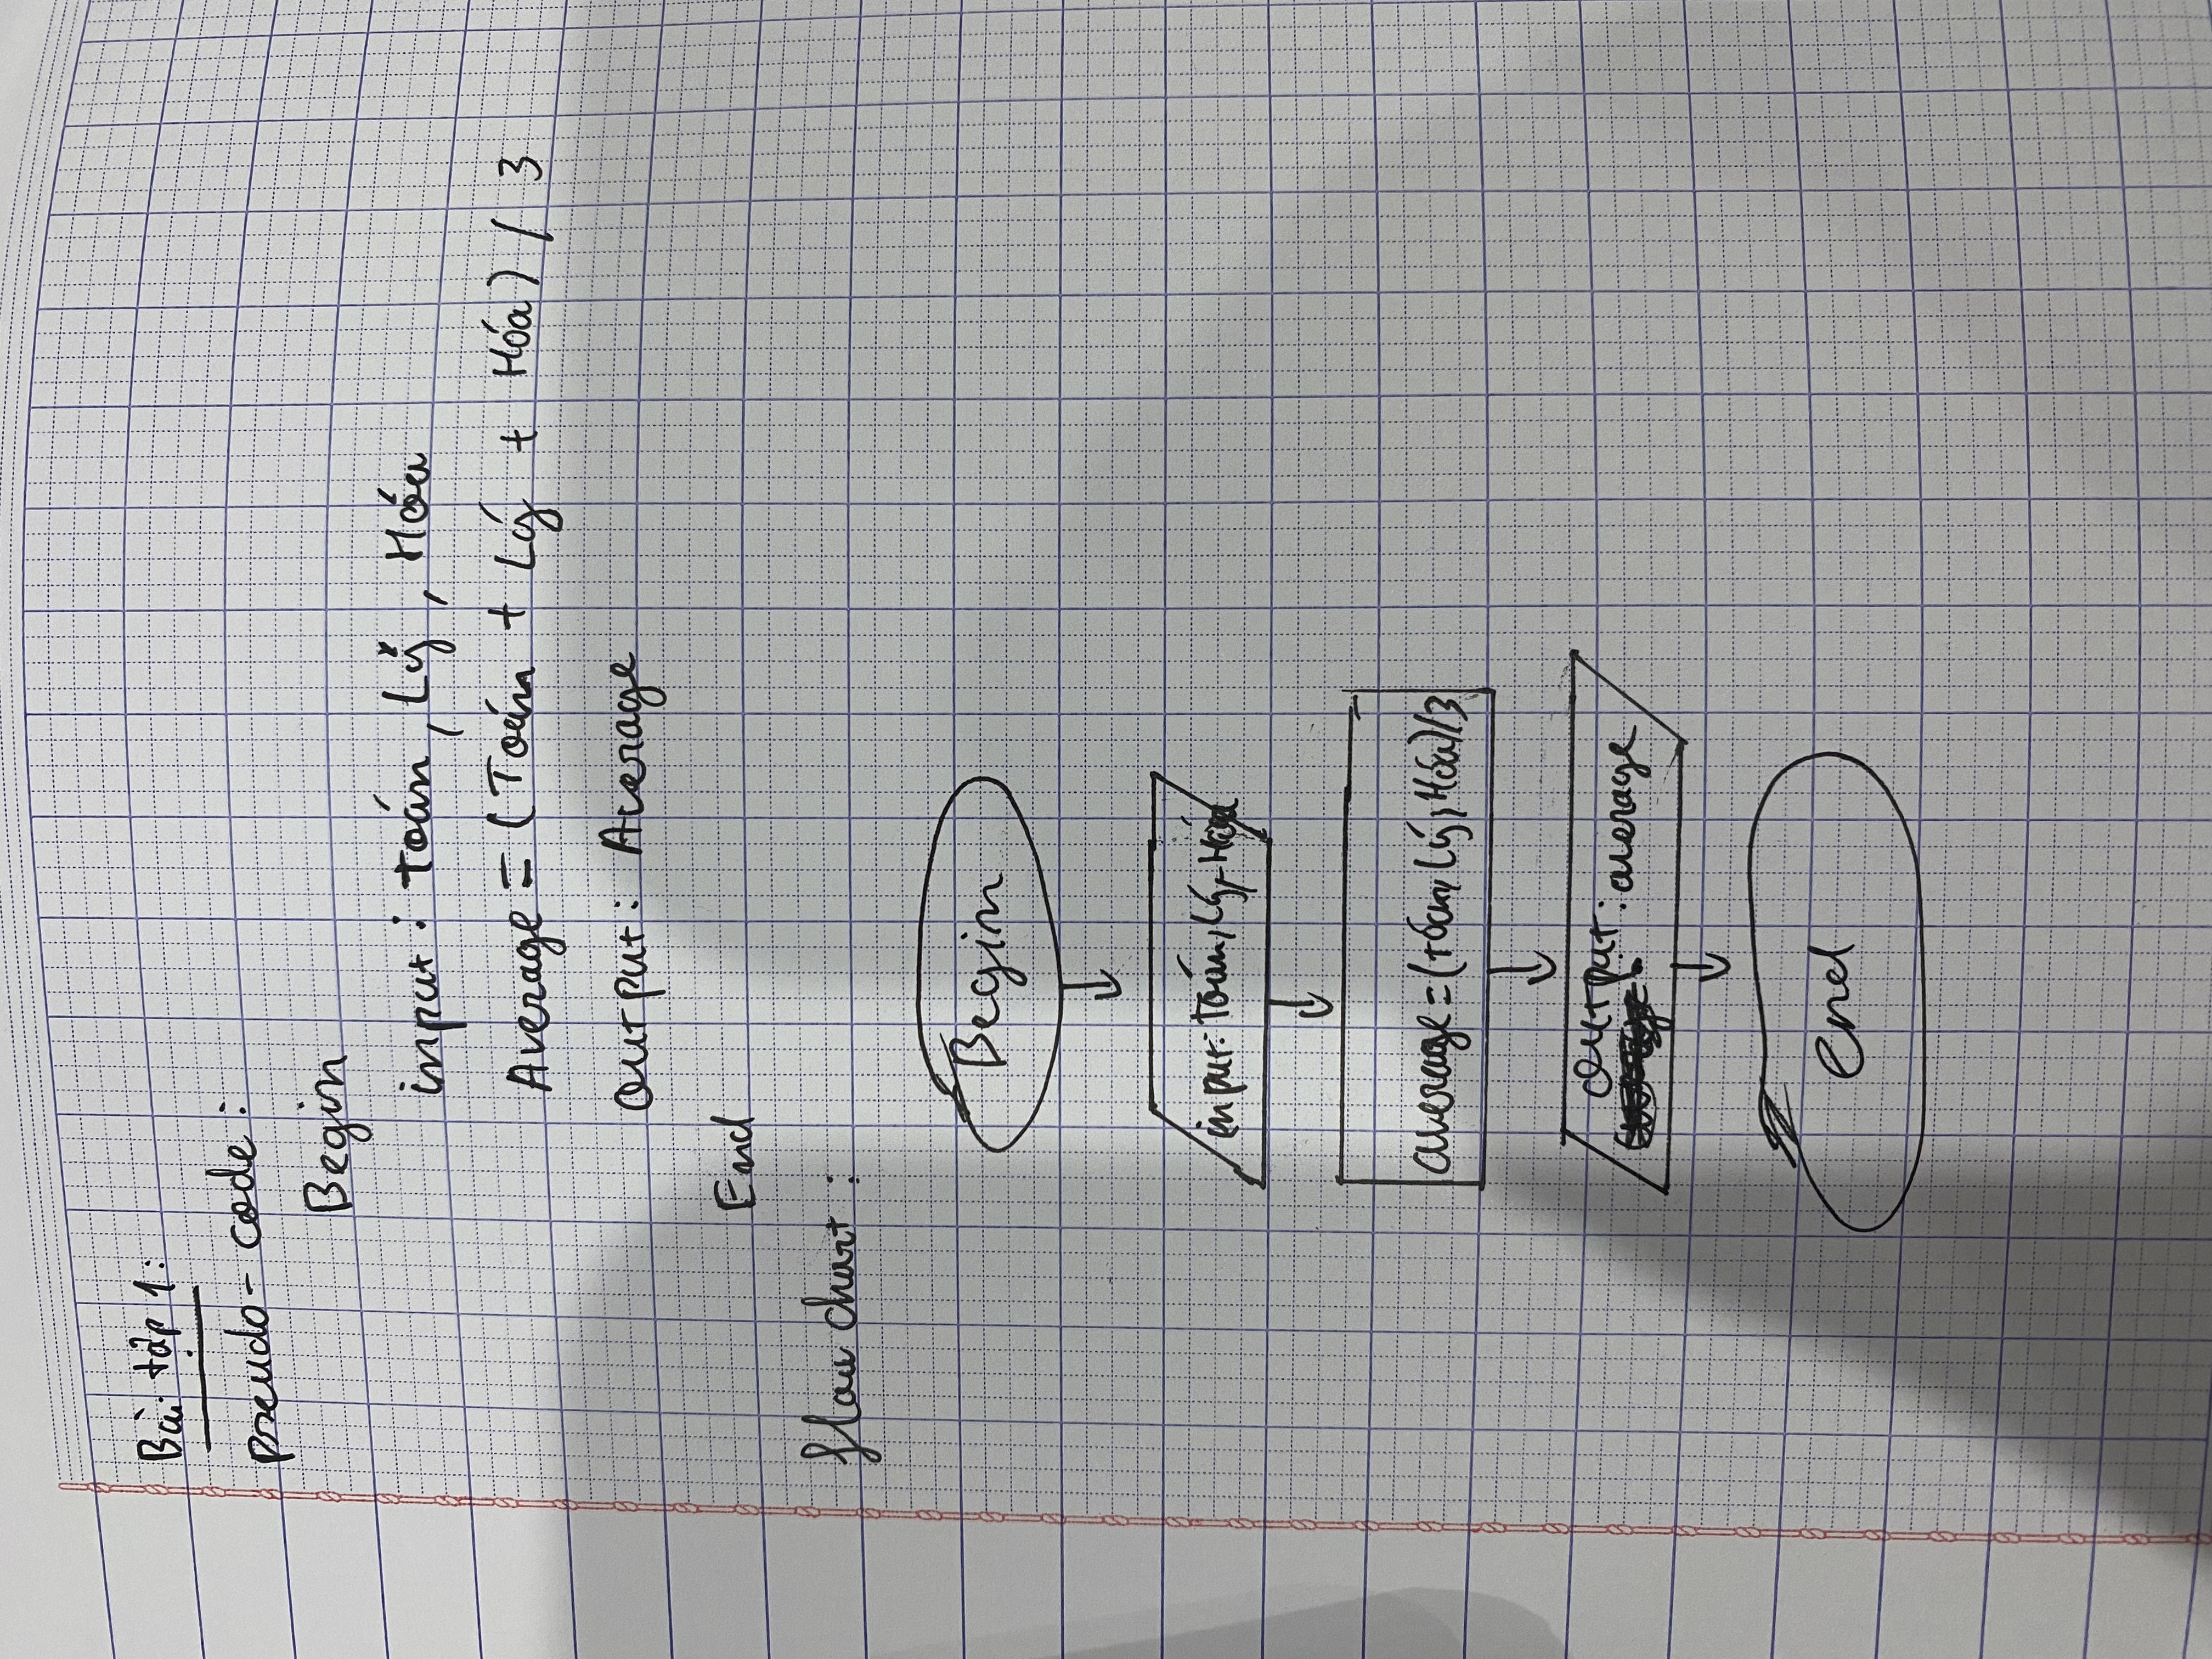 Bài tập 1:
pseudo-code:
Begin
input: toán, Lý, Hóa
Average = (Toán + Lý + Hóa) / 3
Output: Average
End
flow chart:
Begin
input: toán, Lý, Hóa
average = (toán, Lý, Hóa)/3
output: average
end